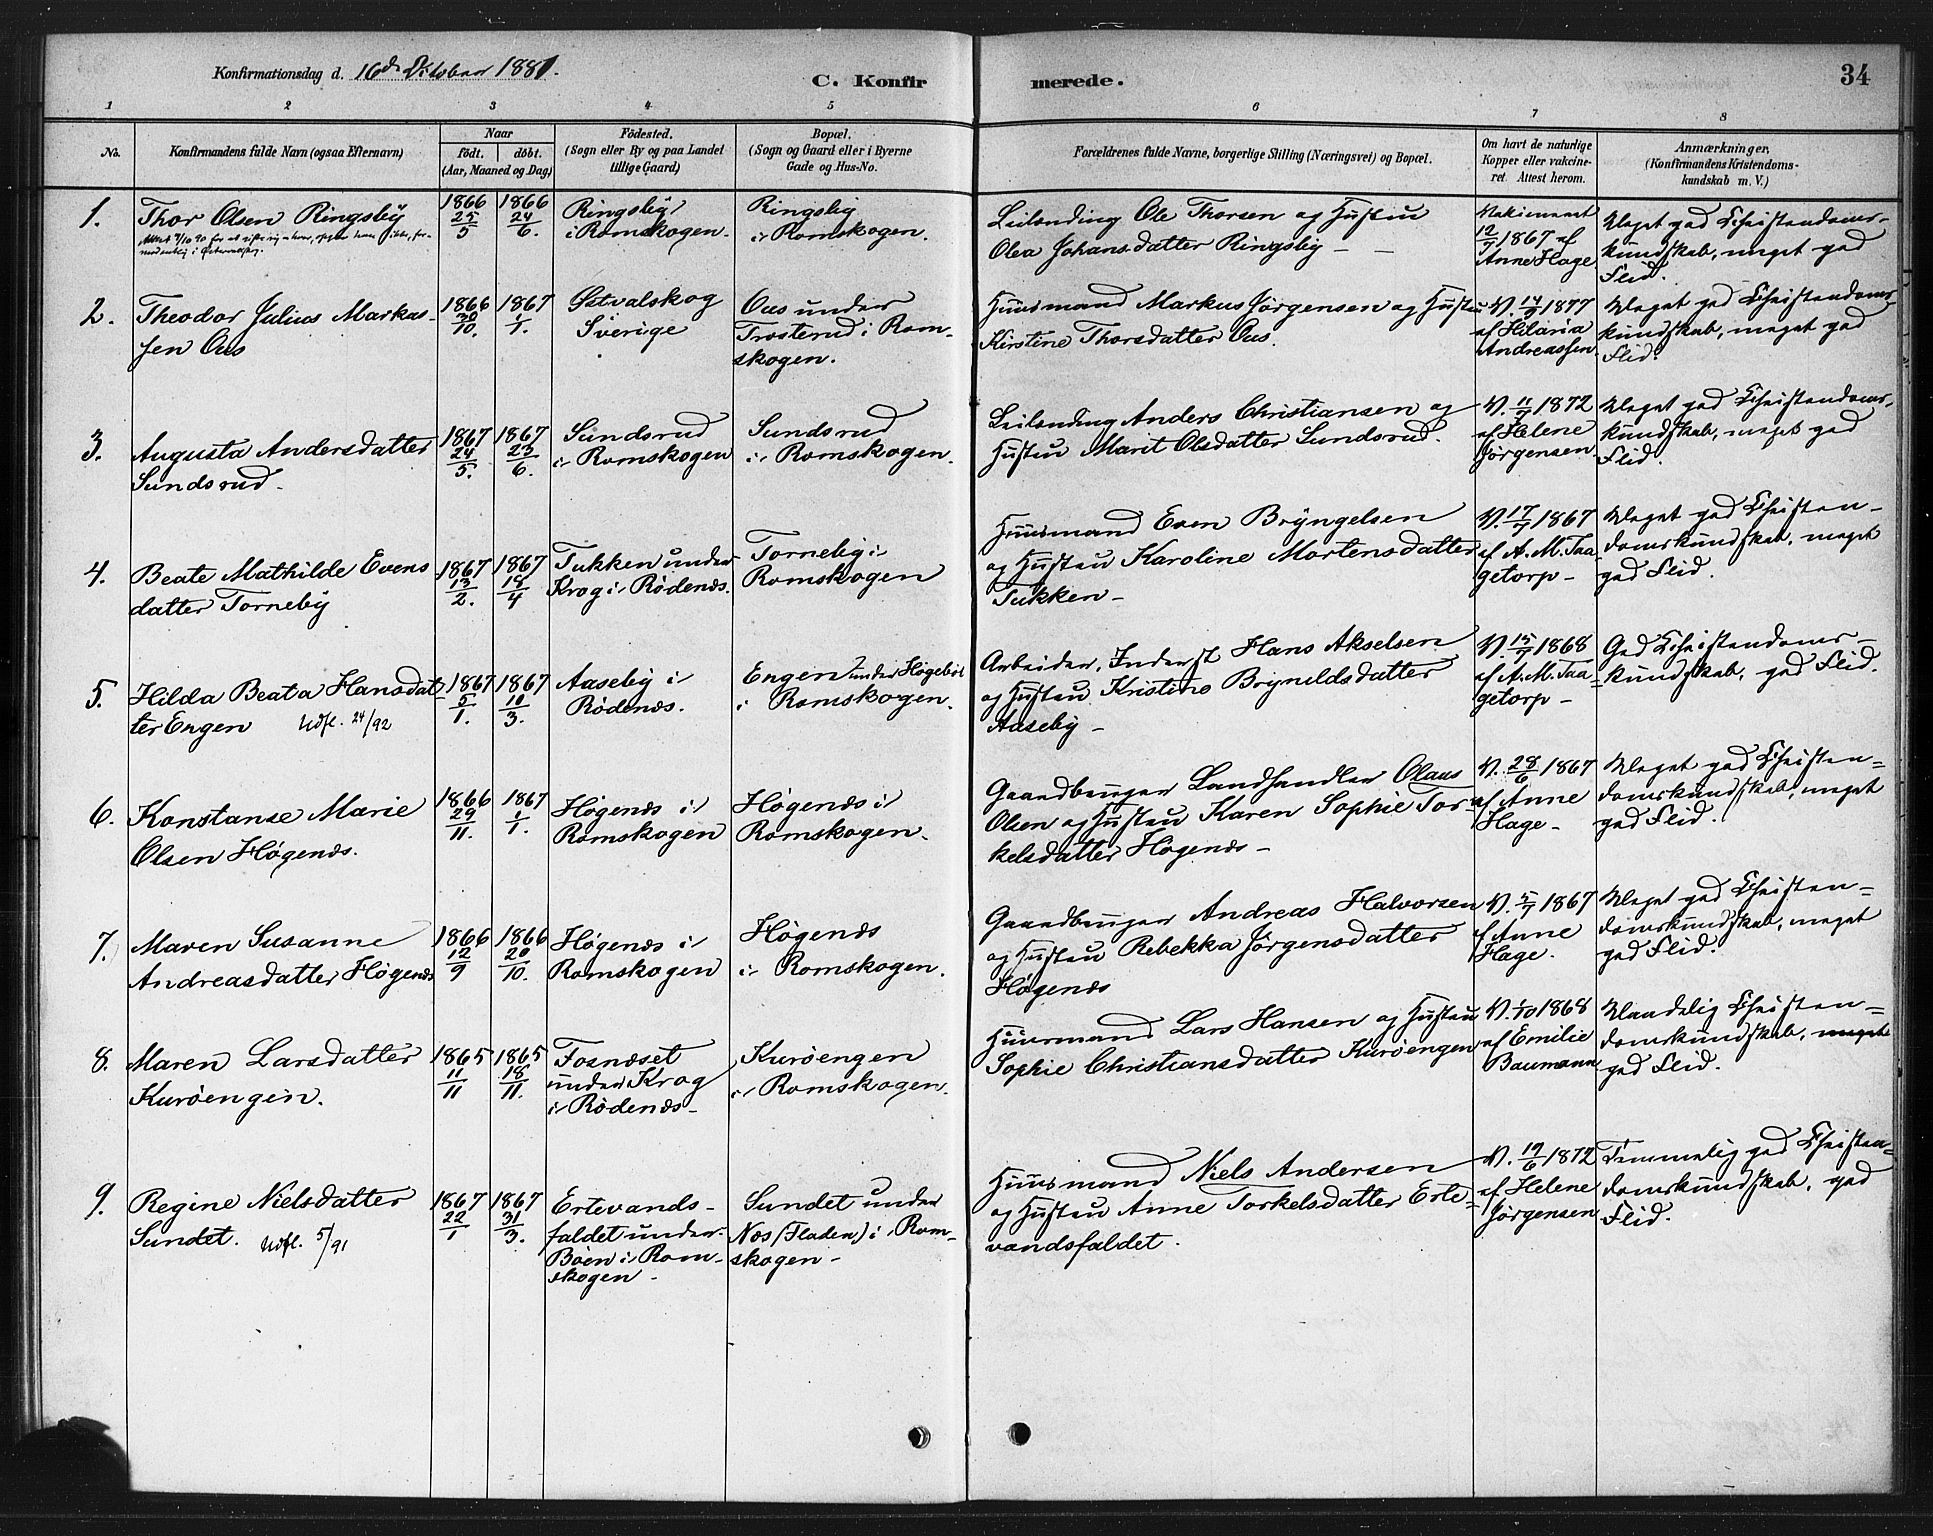 Konfirmationsdag d. 16de Oktober 1881.
C. Konfirmerede.
34
1 2 3 4 5 6 7 8
No.
Konfirmandens fulde Navn (ogsaa Efternavn)
Naar
födt. döbt.
(Aar, Maaned og Dag)
Födested.
(Sogn eller By og paa Landet
tillige Gaard)
Bopæl.
(Sogn og Gaard eller i Byerne
Gade og Hus-No.
Forældrenes fulde Navne, borgerlige Stilling (Næringsvei) og Bopæl.
Om havt de naturlige
Kopper eller vakcine-
ret. Attest herom.
Anmærkninger,
(Konfirmandens Kristendoms-
kundskab m. V.)
1.
Thor Olsen Ringsby
1866 25/5
1866 24/6.
Ringsby
i Romskogen.
Ringsby
i Romskogen.
Leilending Ole Thorsen og Hustru
Olea Johansdatter Ringsby –
Vakcineret
12/7 1867 af
Anne Hage
Meget god Christendoms-
kundskab, meget god
Flid.
2.
Theodor Julius Markus-
sen Ous
1866 30/10.
1867 1/1.
Östvalskog
Sverige
Ous under
Trosterud i Rom-
skogen.
Huusmand Markus Jörgensen og Hustru
Kirstine Thorsdatter Ous.
V. 14/9 1877
af Hilaria
Andreassen.
Meget god Christendoms-
kundskab, meget god
Flid.
3.
Augusta Andersdatter
Sundsrud.
1867 24/5.
1867 23/6.
Sundsrud
i Romskogen
Sundsrud
i Romskogen.
Leilending Anders Christiansen og
Hustru Marit Olsdatter Sundsrud.
V. 11/7 1872
af Helene
Jörgensen
Meget god Christendoms-
kundskab, meget god
Flid.
4.
Beate Mathilde Evens
datter Torneby
1867 13/2.
1867 18/4
Tukken under
Krog i Rödenæs.
Torneby i
Romskogen
Huusmand Even Bryngelsen
og Hustru Karoline Mortensdatter
Tukken –
V. 17/7 1867
af A. M. Taa
getorp –
Meget god Christen-
domskundskab, meget
god Flid.
5.
Hilda Beata Hansdat
ter Engen Udfl. 24/92
1867 5/1.
1867 10/3.
Aaseby i
Rödenæs.
Engen under Högeböl
i Romskogen.
Arbeider, Inderst Hans Akselsen
og Hustru Kristine Bryneldsdatter
Aaseby –
V. 15/7 1868
af A. M. Taa-
getorp –
God Christendoms-
kundskab, god Flid.
6.
Konstanse Marie
Olsen Høgenæs.
1866 29/11.
1867 1/1.
Høgenæs i
Romskogen
Høgenæs i
Romskogen.
Gaardbruger Landhandler Olaus
Olsen og Hustru Karen Sophie Tor-
kelsdatter Høgenæs –
V. 28/6 1867
af Anne
Hage –
Meget god Christen-
domskundskab, meget
god Flid.
7.
Maren Susanne
Andreasdatter Høgenæs
1866 12/9
1866 20/10.
Høgenæs i
Romskogen
Høgenæs
i Romskogen.
Gaardbruger Andreas Halvorsen
og Hustru Rebekka Jörgensdatter
Høgenæs
V. 5/7 1867
af Anne
Hage.
Meget god Christen-
domskundskab, meget
god Flid.
8.
Maren Larsdatter
Kuröengen.
1865 11/11
1865 18/11.
Fosnæset
under Krog
i Rödenæs –
Kuröengen
i Romskogen.
Huusmand Lars Hansen og Hustru
Sophie Christiansdatter Kuröengen
V. 1/10 1868
af Emilie
Baumann
Maadelig Christen-
domskundskab, meget
god Flid.
9.
Regine Nielsdatter
Sundet. Udfl. 5/91
1867 22/1
1867 31/3.
Ertevands-
faldet under
Böen i Rom-
skogen –
Sundet under
Næs (Fladen) i Rom-
skogen –
Huusmand Niels Andersen
og Hustru Anne Torkelsdatter Erte-
vandsfaldet.
V. 19/6 1872
af Helene
Jörgensen
Temmelig god Christen-
domskundskab, god
Flid.